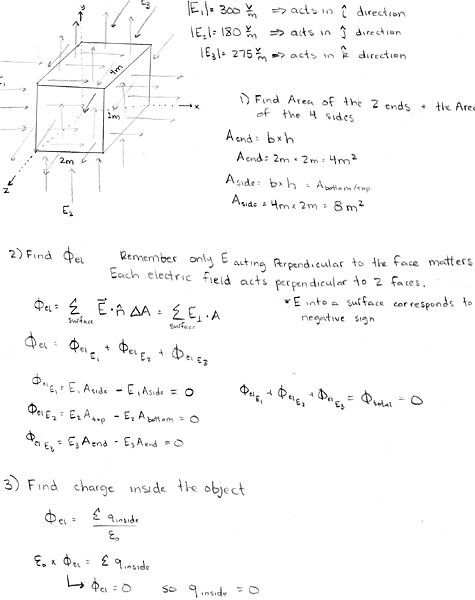 y
E₃
|E₁| = 300 V/m ⇒ acts in î direction
|E₂| = 180 V/m ⇒ acts in ĵ direction
|E₃| = 275 V/m ⇒ acts in k̂ direction
E₁
4m
2m
x
2m
z
E₂
1) Find Area of the 2 ends + the Area
of the 4 sides
Aend = b×h
Aend = 2m × 2m = 4m²
Aside = b×h = Abottom/top
Aside = 4m × 2m = 8m²
2) Find Φel Remember only E acting perpendicular to the face matters
Each electric field acts perpendicular to 2 faces.
Φel = Σ surface E⃗·n̂ ΔA = Σ surface E⊥·A
*E into a surface corresponds to
negative sign
Φel = Φel E₁ + Φel E₂ + Φel E₃
Φel E₁ = E₁Aside − E₁Aside = 0
Φel E₁ + Φel E₂ + Φel E₃ = Φtotal = 0
Φel E₂ = E₂Atop − E₂Abottom = 0
Φel E₃ = E₃Aend − E₃Aend = 0
3) Find charge inside the object
Φel = Σ qinside / ε₀
ε₀ × Φel = Σ qinside
↳ Φel = 0 so qinside = 0